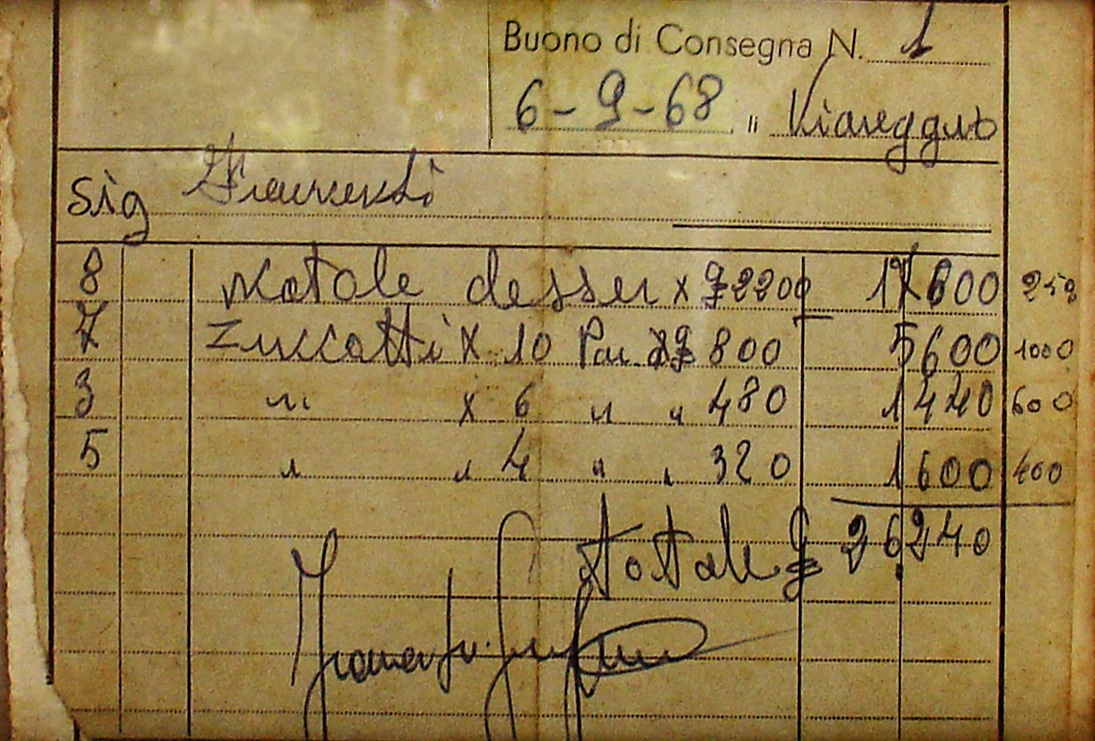 Buono di Consegna N. 1
6-9-68 " Viareggio
Sig Francesconi
8 Natale desser x £ 2200 17600 250
7 Zuccotti x 10 Por. £ 800 5600 1000
3 " x 6 " " 480 1440 600
5 " " 4 " " 320 1600 400
totale £ 26240